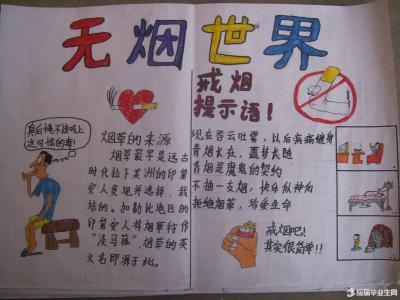 无烟世界
戒烟
提示语！
真后悔不该吸上
这可恨的毒！
烟草的来源
烟草最早是远古
时代拉丁美洲的印第
安人发现并选择，栽
培的。加勒比地区的
印第安人将烟草称作
“淡马菰”，烟草的英
文名即源于此。
现在吞云吐雾，以后病痛缠身
青烟长在，噩梦长随
香烟是魔鬼的契约
不抽一支烟，快乐似神仙
拒绝烟草，珍爱生命
戒烟吧！
其实很简单！！
应届毕业生网